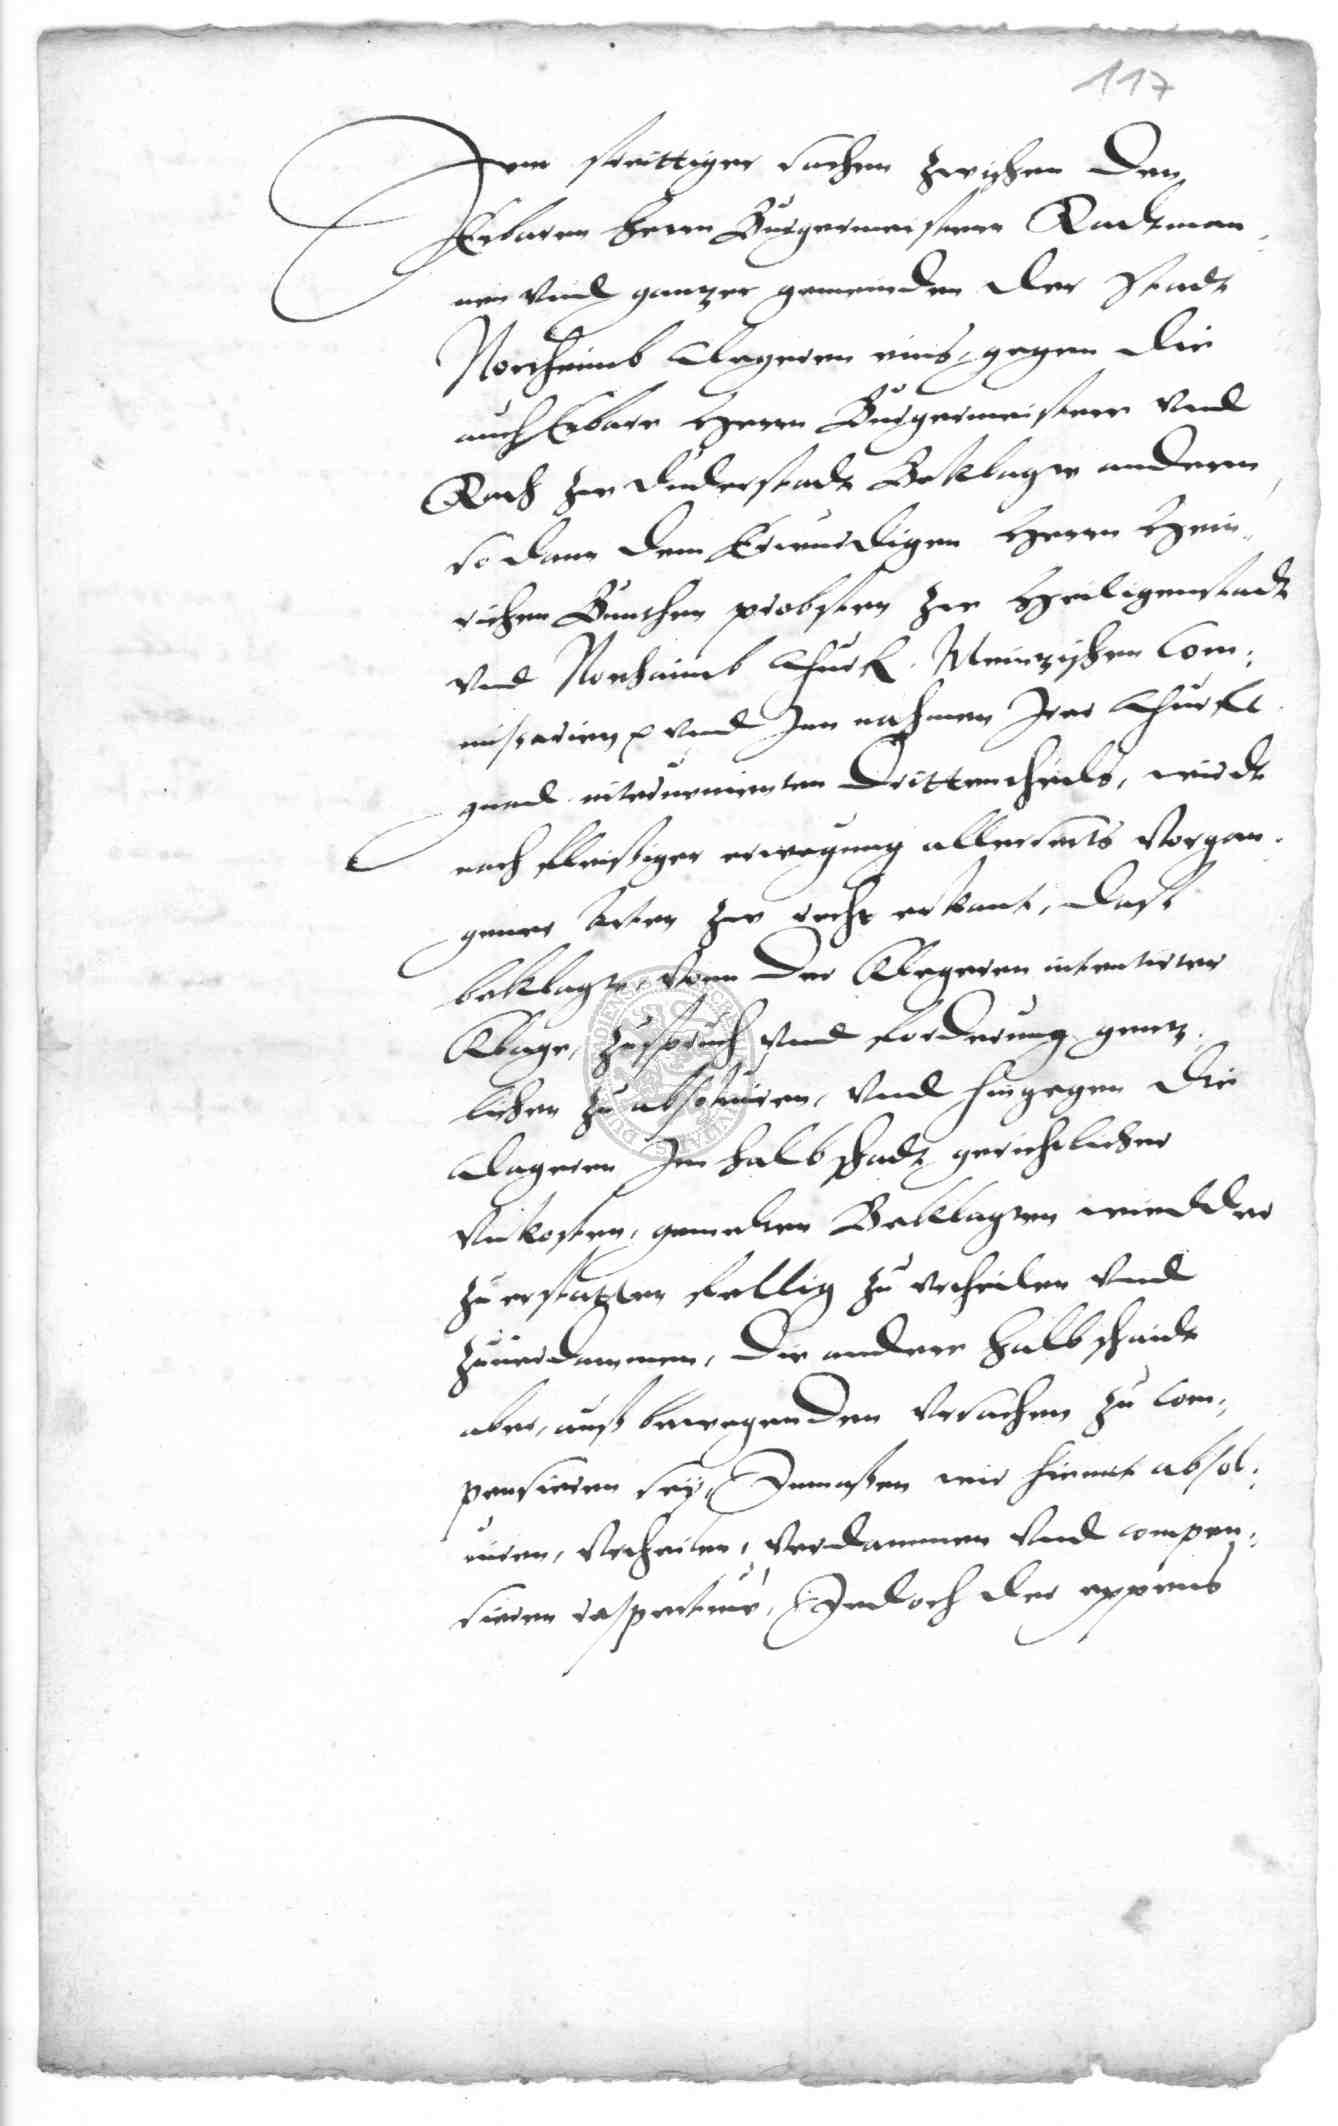 117
Inn strittigen sachen zwischen den
Erbaren herrn Burgermeistern Radtman¬
nen vnd ganzer gemeinden der Stadt
Northeimb Clegeren eins, gegen die
auch Erbare Herrn Burgermeistere vnd
Rath zu Duderstadt Beklagte anderen,
so dann dem Erwurdigen Herrn Hein¬
richen Bunthen probsten zu Heiligenstadt
vnd Northeimb Churf. Meinzischen Com¬
missarien vnd Inn nahmen Irer Churfl.
gnad. interuenienten Drittentheils, wirdt
nach fleissiger erwegung allerseits Vorgan¬
gener Acten zu recht erkant, dass
beklagte, Vonn der Klegeren intentirter
Klage, Zuspruch vnd forderung genz¬
lichen zu absoluiren, vnd hingegen die
Clageren Im halbschadt gerichtlicher
Vnkosten, gemelten Beklagten wiedder
zu erstatten fellig zu vrtheilen vnd
zuuerdammen, die andere halbschaidt
aber, auss bewegenden Vrsachen zu Com¬
pensieren sey, Inmassen wir hiemit absol¬
uiren, Vrtheilen, Verdammen vnd compen¬
sieren respectiue, Jedoch der expens